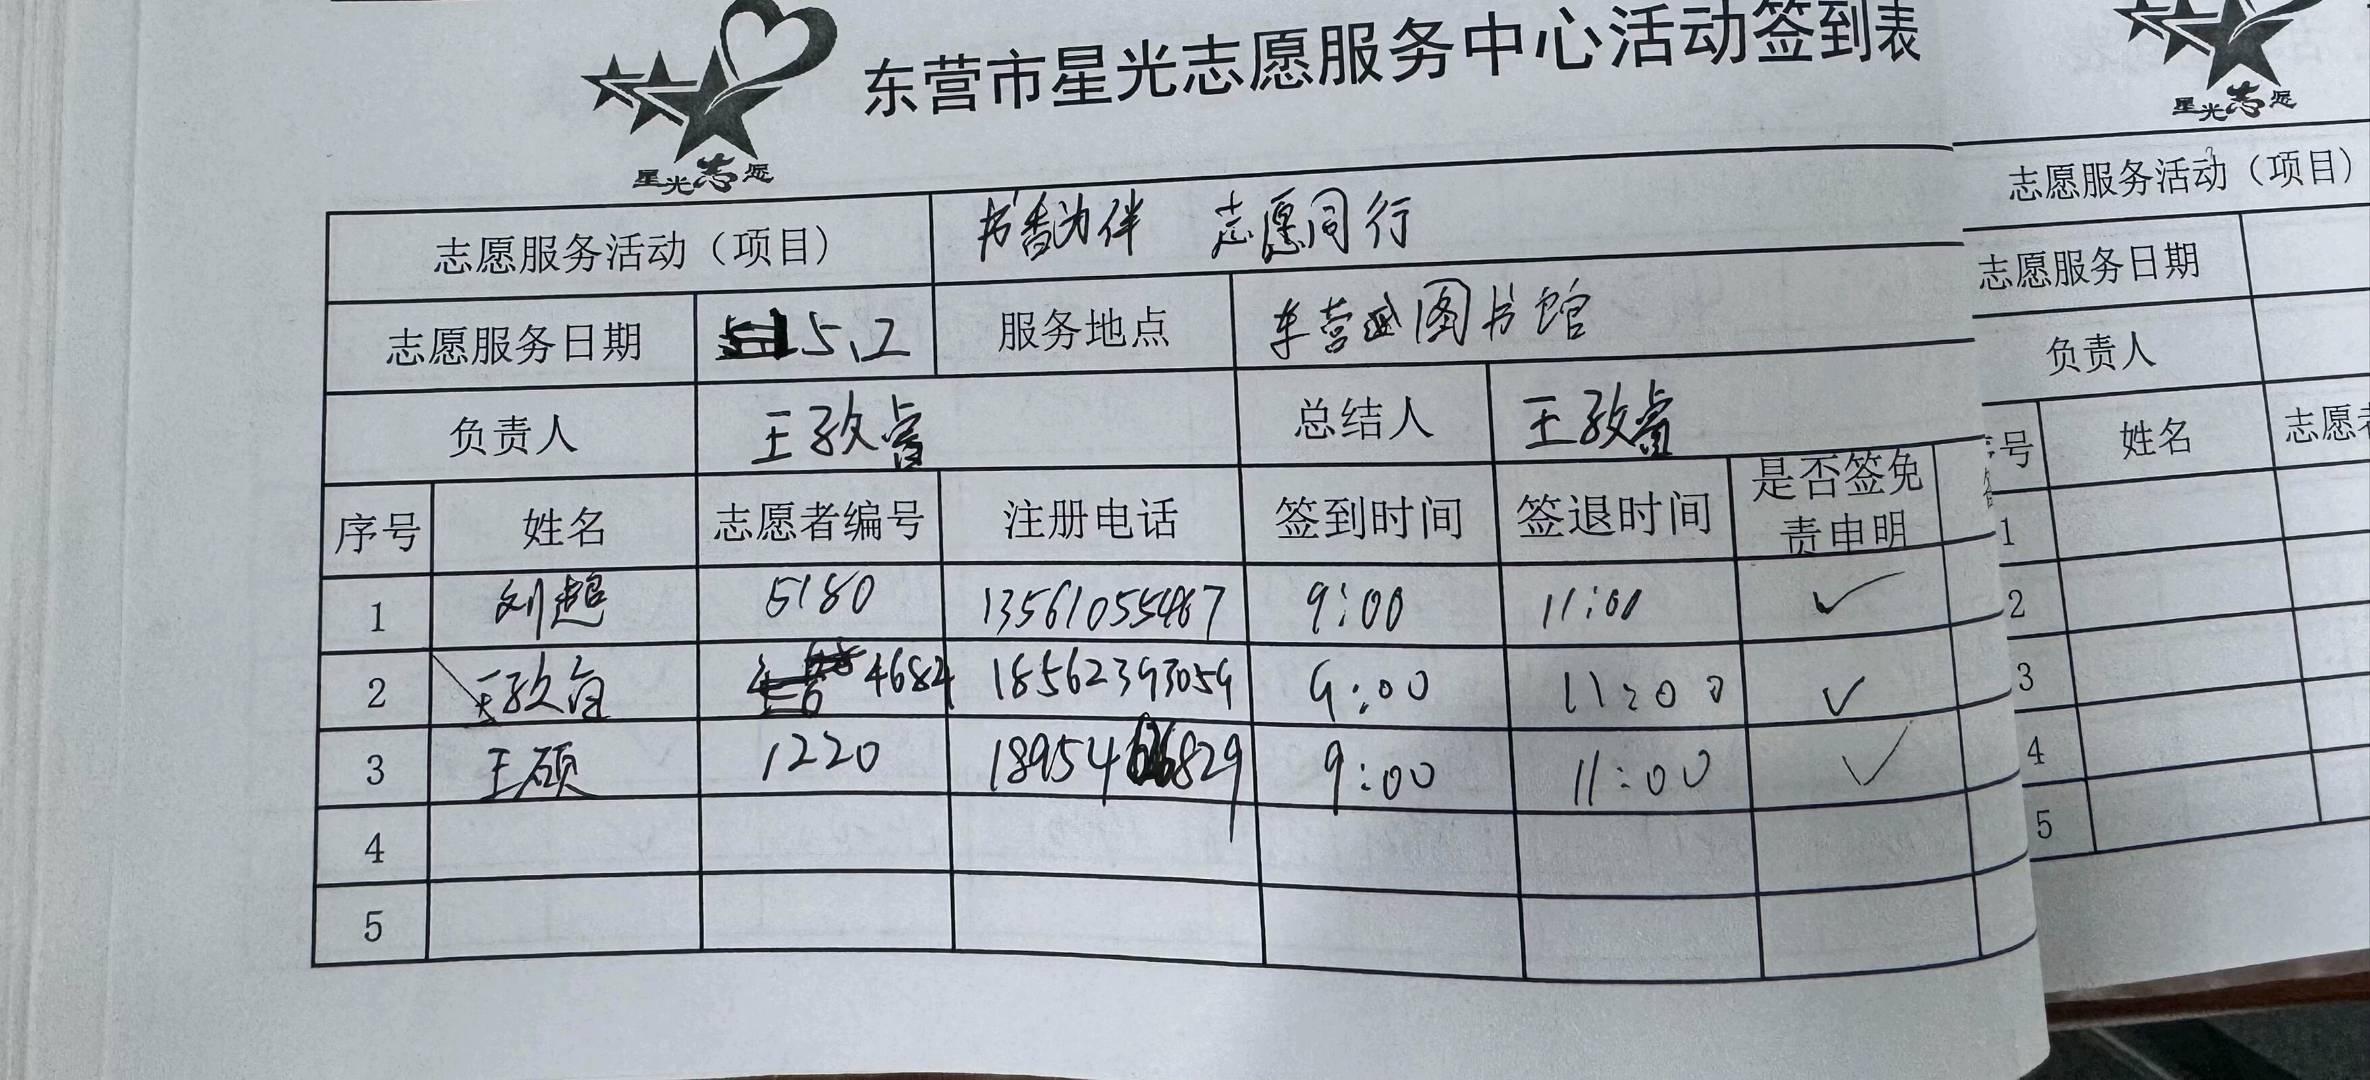 东营市星光志愿服务中心活动签到表
星光志愿
志愿服务活动（项目） 书香为伴 志愿同行
志愿服务日期 5.2 服务地点 东营区图书馆
负责人 王孜睿 总结人 王孜睿
序号 姓名 志愿者编号 注册电话 签到时间 签退时间 是否签免责申明
1 刘超 5180 13561055467 9:00 11:00 ✓
2 4684 18562393059 9:00 11:00 ✓
3 王硕 1220 18954 829 9:00 11:00 ✓
4
5
星光志愿
志愿服务活动（项目）
志愿服务日期
负责人
号 姓名 志愿
1
2
3
4
5